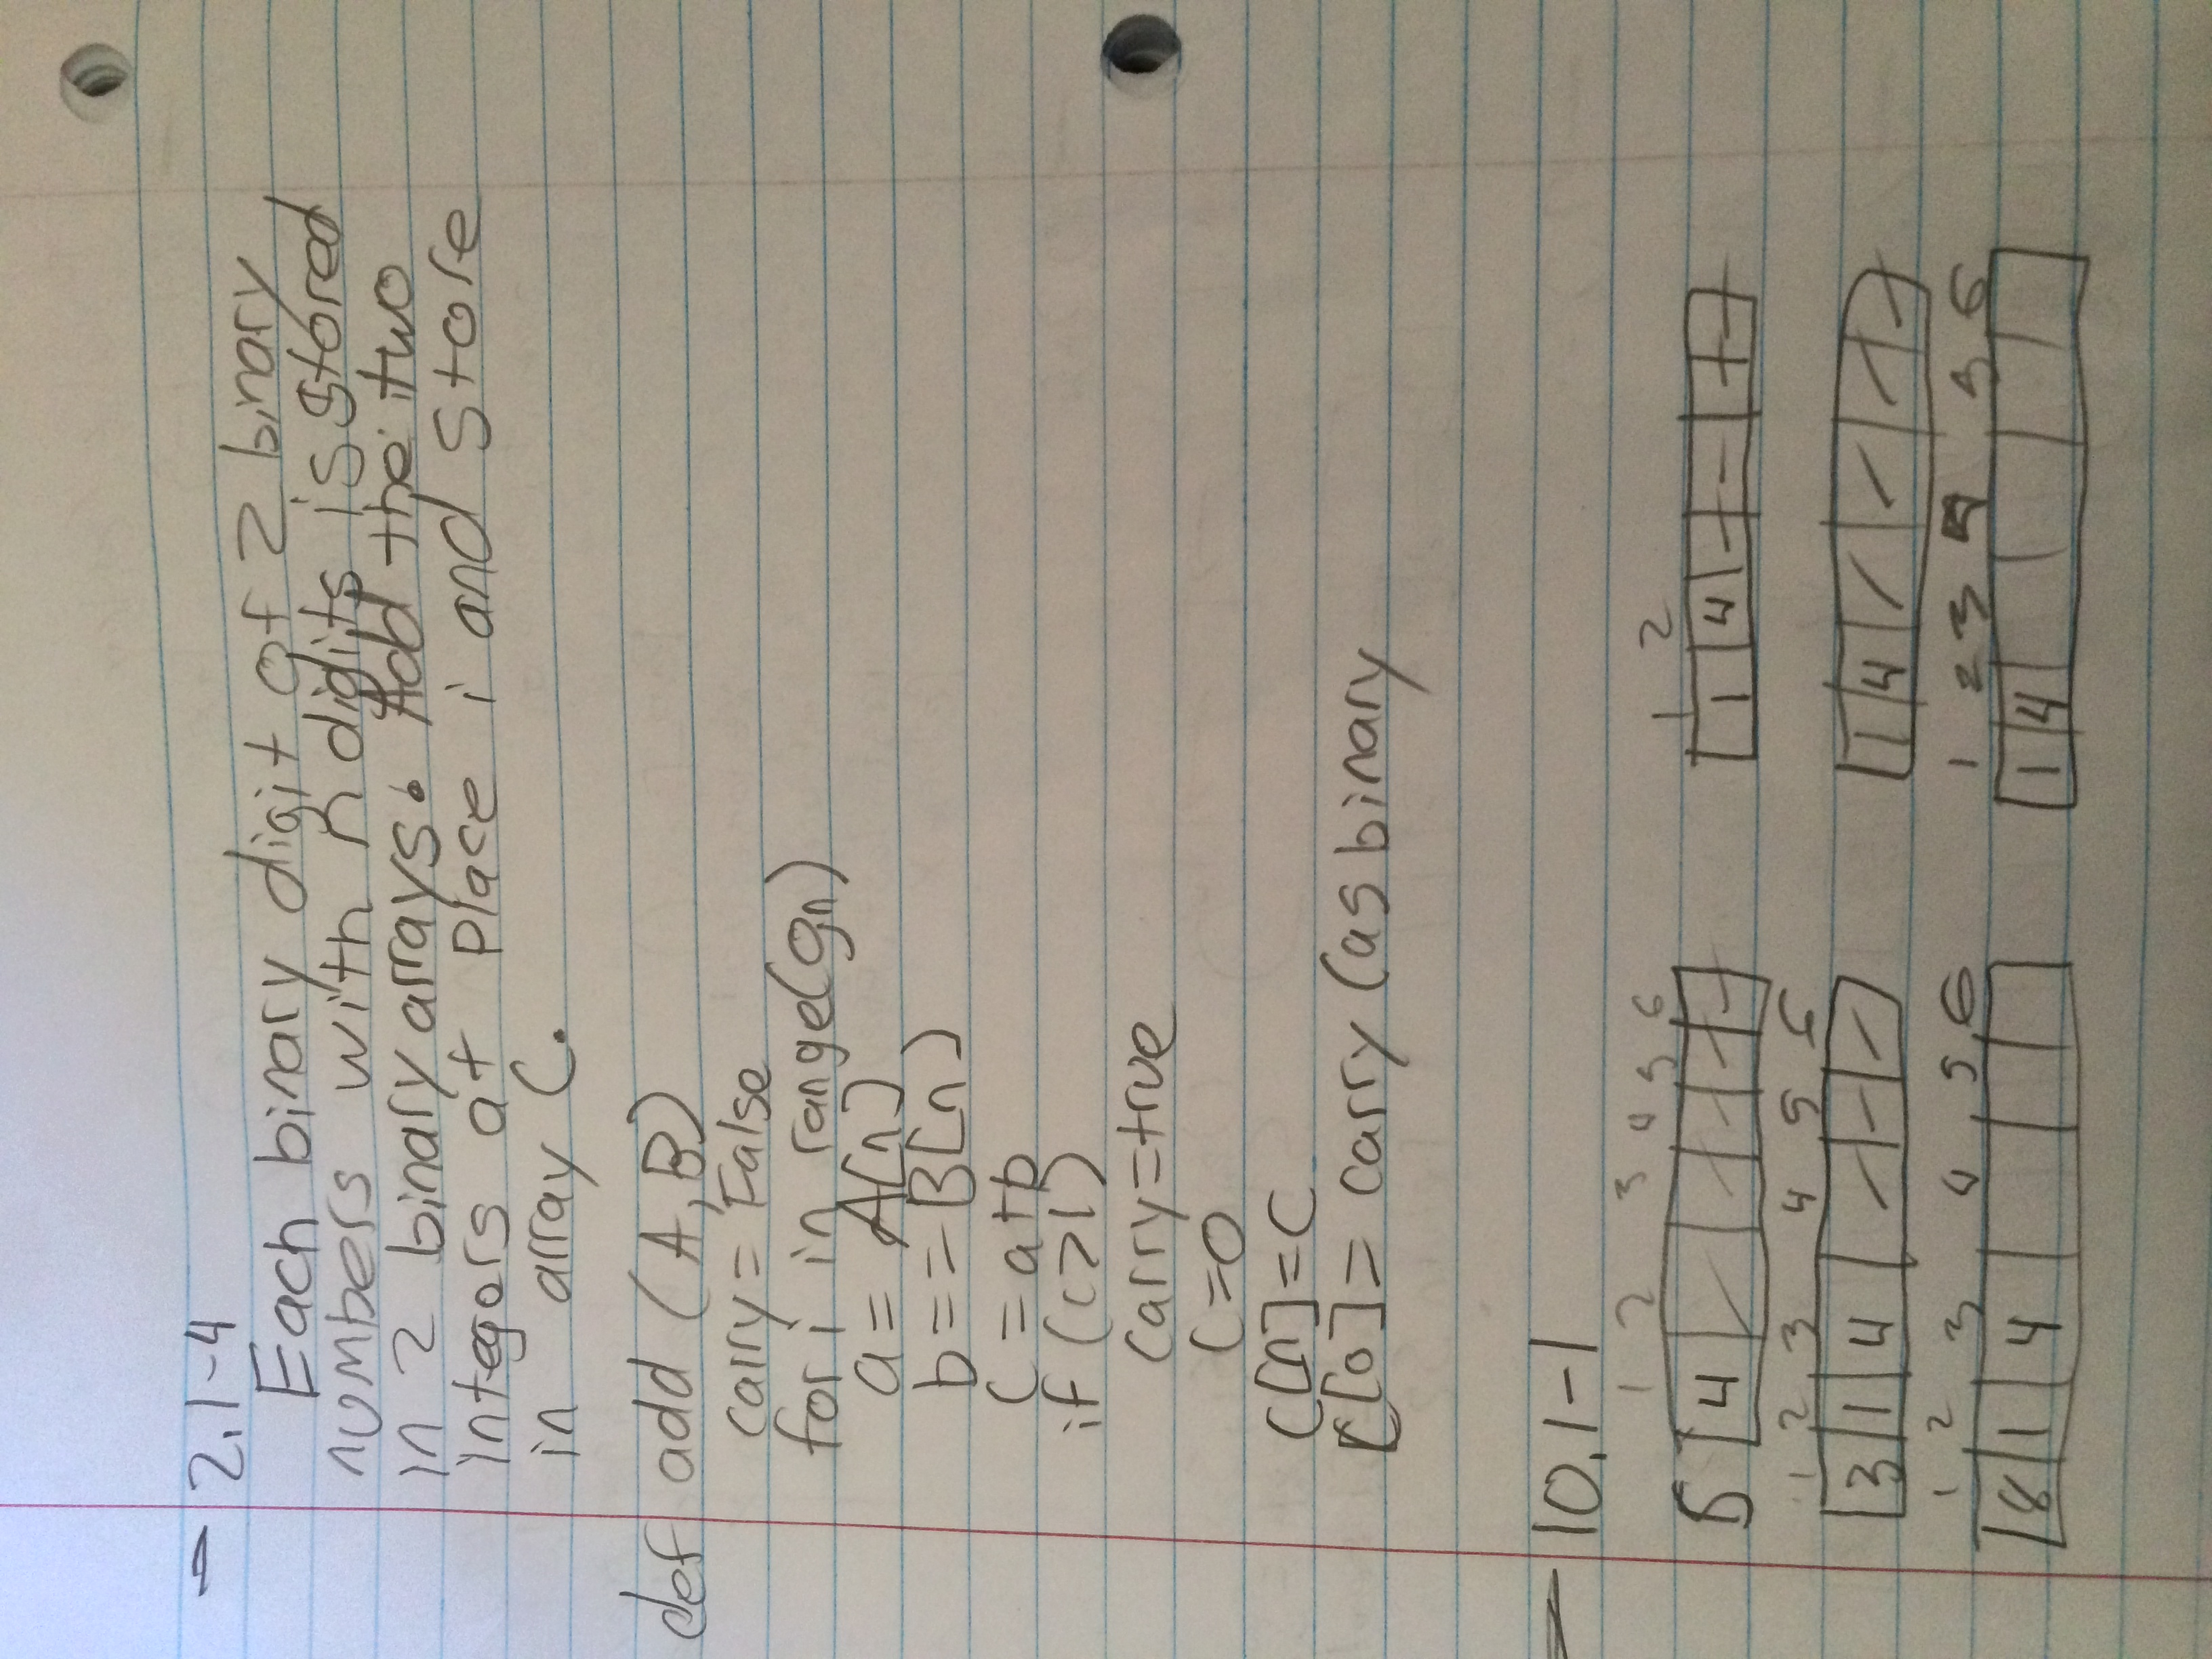 - 2.1-4
Each binary digit of 2 binary
numbers with n digits is stored
in 2 binary arrays. Add the two
integers at place i and store
in array C.
def add (A,B)
carry = False
for i in range(0n)
a = A[n]
b == B[n]
c = a+b
if (c>1)
carry=true
c=0
C[n]=c
C[0]= carry (as binary
- 10.1-1
1 2 3 4 5 6
S 4 - - - - -
1 2
1 4 - - - -
1 2 3 4 5 6
3 1 4 - - -
1 4 - - - -
1 2 3 4 5 6
8 1 4
1 2 3 4 5 6
1 4